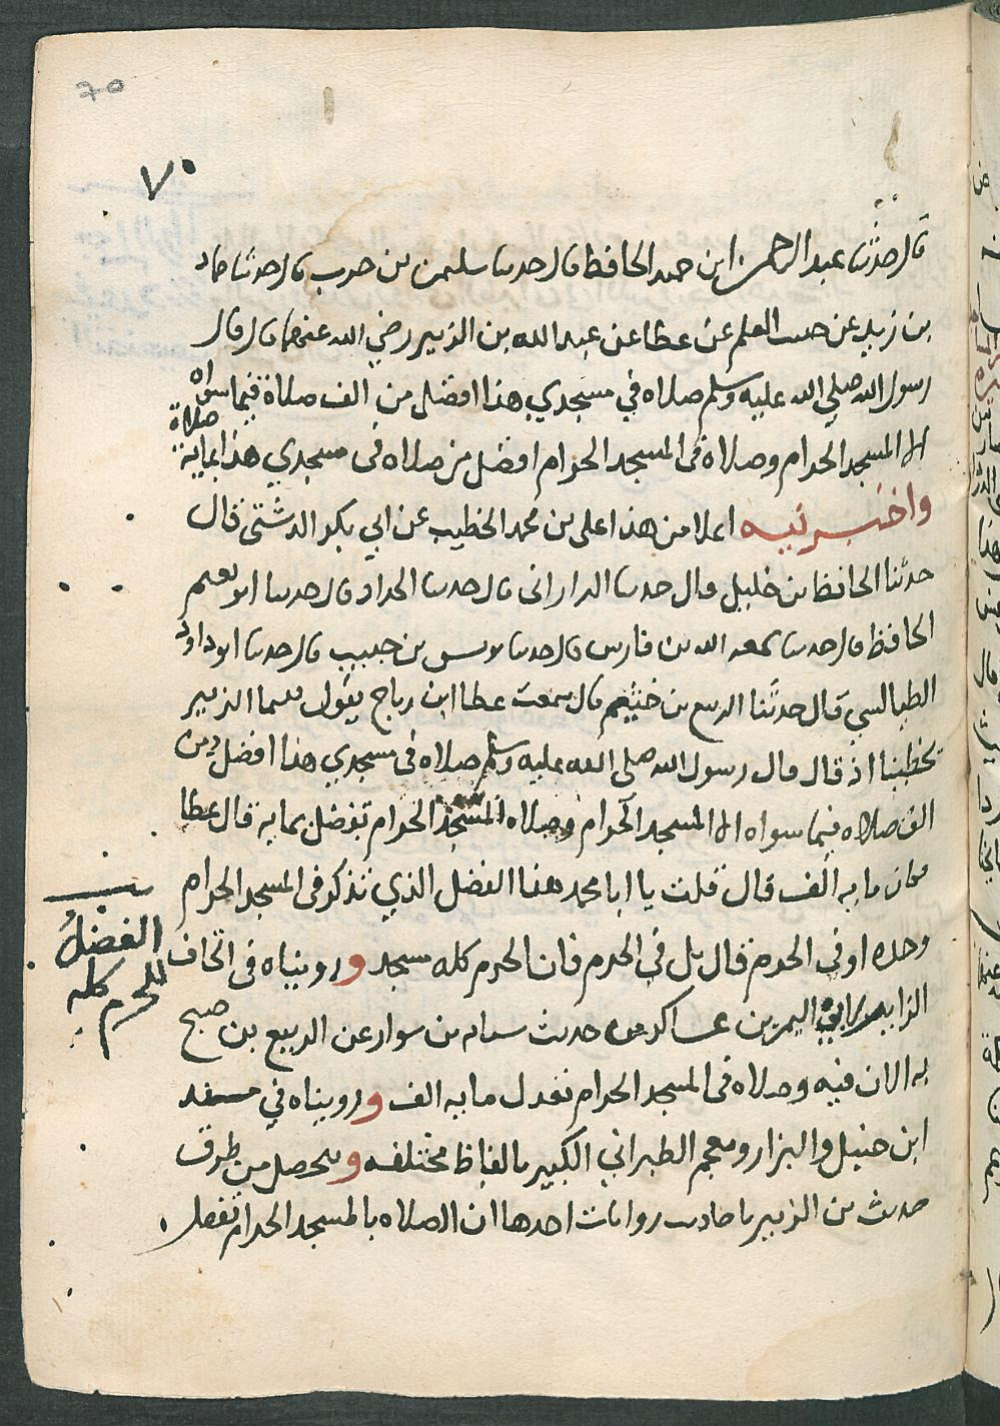 70
٧٠
قال حدثنا عبد الرحمن ابن حمد الحافظ قال حدثنا سليمن بن حرب قال حدثنا حماد
بن زيد عن حبيب المعلم عن عطا عن عبد الله بن الزبير رضي الله عنهما قال قال
رسول الله صلي الله عليه وسلم صلاه في مسجدي هذا افضل من الف صلاة فيما سواه
الا المسجد الحرام وصلاه في المسجد الحرام افضل من صلاه في مسجدي هذا بماية صلاة
واخبرنيه اعلا من هذا علي بن محمد الخطيب عن ابي بكر الدشتي قال
حدثنا الحافظ بن خليل قال حدثنا الداراني قال حدثنا الحداد قال حدثنا ابو نعيم
الحافظ قال حدثنا عبد الله بن فارس قال حدثنا يونس بن حبيب قال حدثنا ابو داود
الطيالسي قال حدثنا الربيع بن خثيم قال سمعت عطا ابن رباح يقول بينما الزبير
يخطبنا اذ قال قال رسول الله صلى الله عليه وسلم صلاه في مسجدي هذا افضل من
الف صلاه فيما سواه الا المسجد الحرام وصلاه المسجد الحرام تفضل بمايه قال عطا
فكان مايه الف قال قلت يا ابا محمد هذا الفضل الذي تذكر في المسجد الحرام
وحده او في الحرم قال بل في الحرم فان الحرم كله مسجد ورويناه في اتحاف
الزاير لابي اليمن بن عساكر من حديث شبابه بن سوار عن الربيع بن صبيح
به الا ان فيه وصلاه في المسجد الحرام تعدل مايه الف ورويناه في مسند
ابن حنبل والبزار ومعجم الطبراني الكبير بالفاظ مختلفه ويتحصل من طرق
حديث بن الزبير روايات احدها ان الصلاه بالمسجد الحرام تفضل
الفضل
للحرم كله